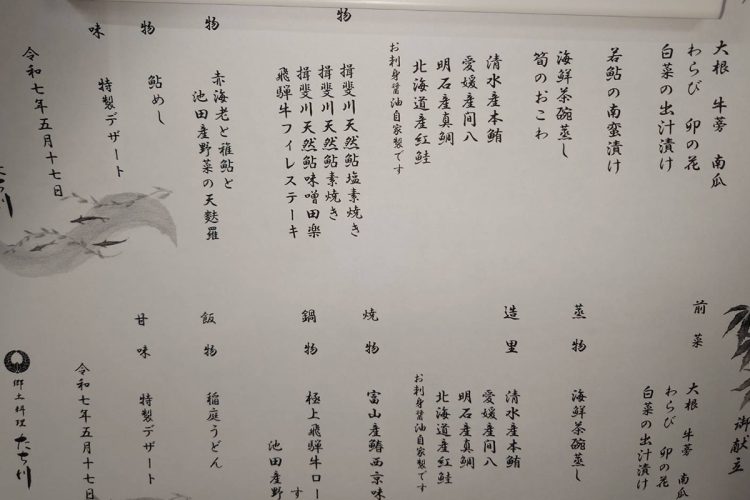 大根 牛蒡 南瓜
わらび 卯の花
白菜の出汁漬け
若鮎の南蛮漬け
海鮮茶碗蒸し
筍のおこわ
清水産本鮪
愛媛産間八
明石産真鯛
北海道産紅鮭
お刺身醤油自家製です
物
揖斐川天然鮎塩素焼き
揖斐川天然鮎素焼き
揖斐川天然鮎味噌田楽
飛騨牛フィレステーキ
物
赤海老と稚鮎と
池田産野菜の天麩羅
物
鮎めし
味
特製デザート
令和七年五月十七日
たち川
御献立
前菜
大根 牛蒡 南瓜
わらび 卯の花
白菜の出汁漬け
蒸物
海鮮茶碗蒸し
造里
清水産本鮪
愛媛産間八
明石産真鯛
北海道産紅鮭
お刺身醤油自家製です
焼物
富山産鰆西京味
鍋物
極上飛騨牛ロー
す
池田産野
飯物
稲庭うどん
甘味
特製デザート
令和七年五月十七日
郷土料理
たち川